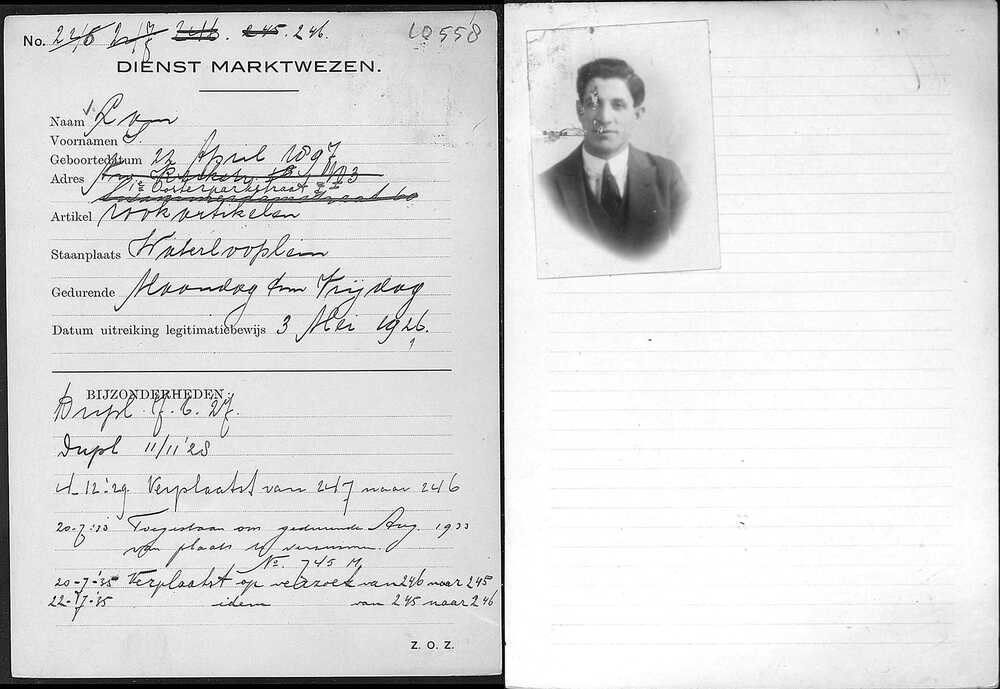 No. 246 247 246. 245. 246.
10558
DIENST MARKTWEZEN.
Naam
Voornamen S.
Geboortedatum 22 April 1897
Adres 103
1e Oosterparkstraat
Artikel rookartikelen
Staanplaats Waterlooplein
Gedurende Maandag t/m Vrijdag
Datum uitreiking legitimatiebewijs 3 Mei 1926.
BIJZONDERHEDEN:
Dupl 11/11 '28
4-12-'29. Verplaatst van 247 naar 246
20-7-'33 Toegestaan om gedurende Aug. 1933
van plaats te
No. 745 M.
20-7-'35 Verplaatst op verzoek van 246 naar 245
22-7-'35 idem van 245 naar 246
Z. O. Z.